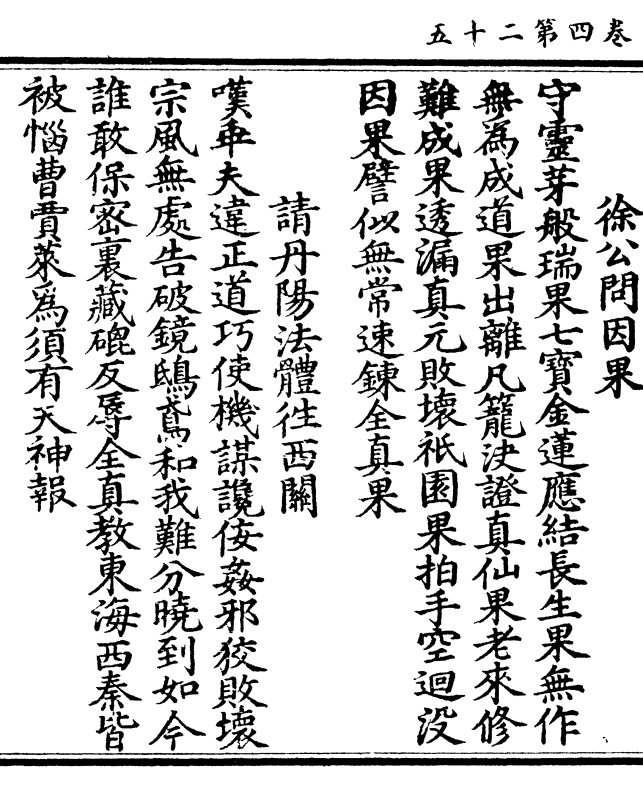 卷四第二十五
徐公問因果
守靈芽般瑞果七寶金蓮應結長生果無作
無為成道果出離凡籠決證真仙果老來修
難成果透漏真元敗壞祇園果拍手空迴没
因果譬似無常速鍊全真果
請丹陽法體往西關
嘆車夫違正道巧使機謀讒侫姦邪狡敗壞
宗風無處告破鏡鴟鳶和我難分曉到如今
誰敢保密裏藏磇反辱全真教東海西秦皆
被惱曹賈萊為須有天神報